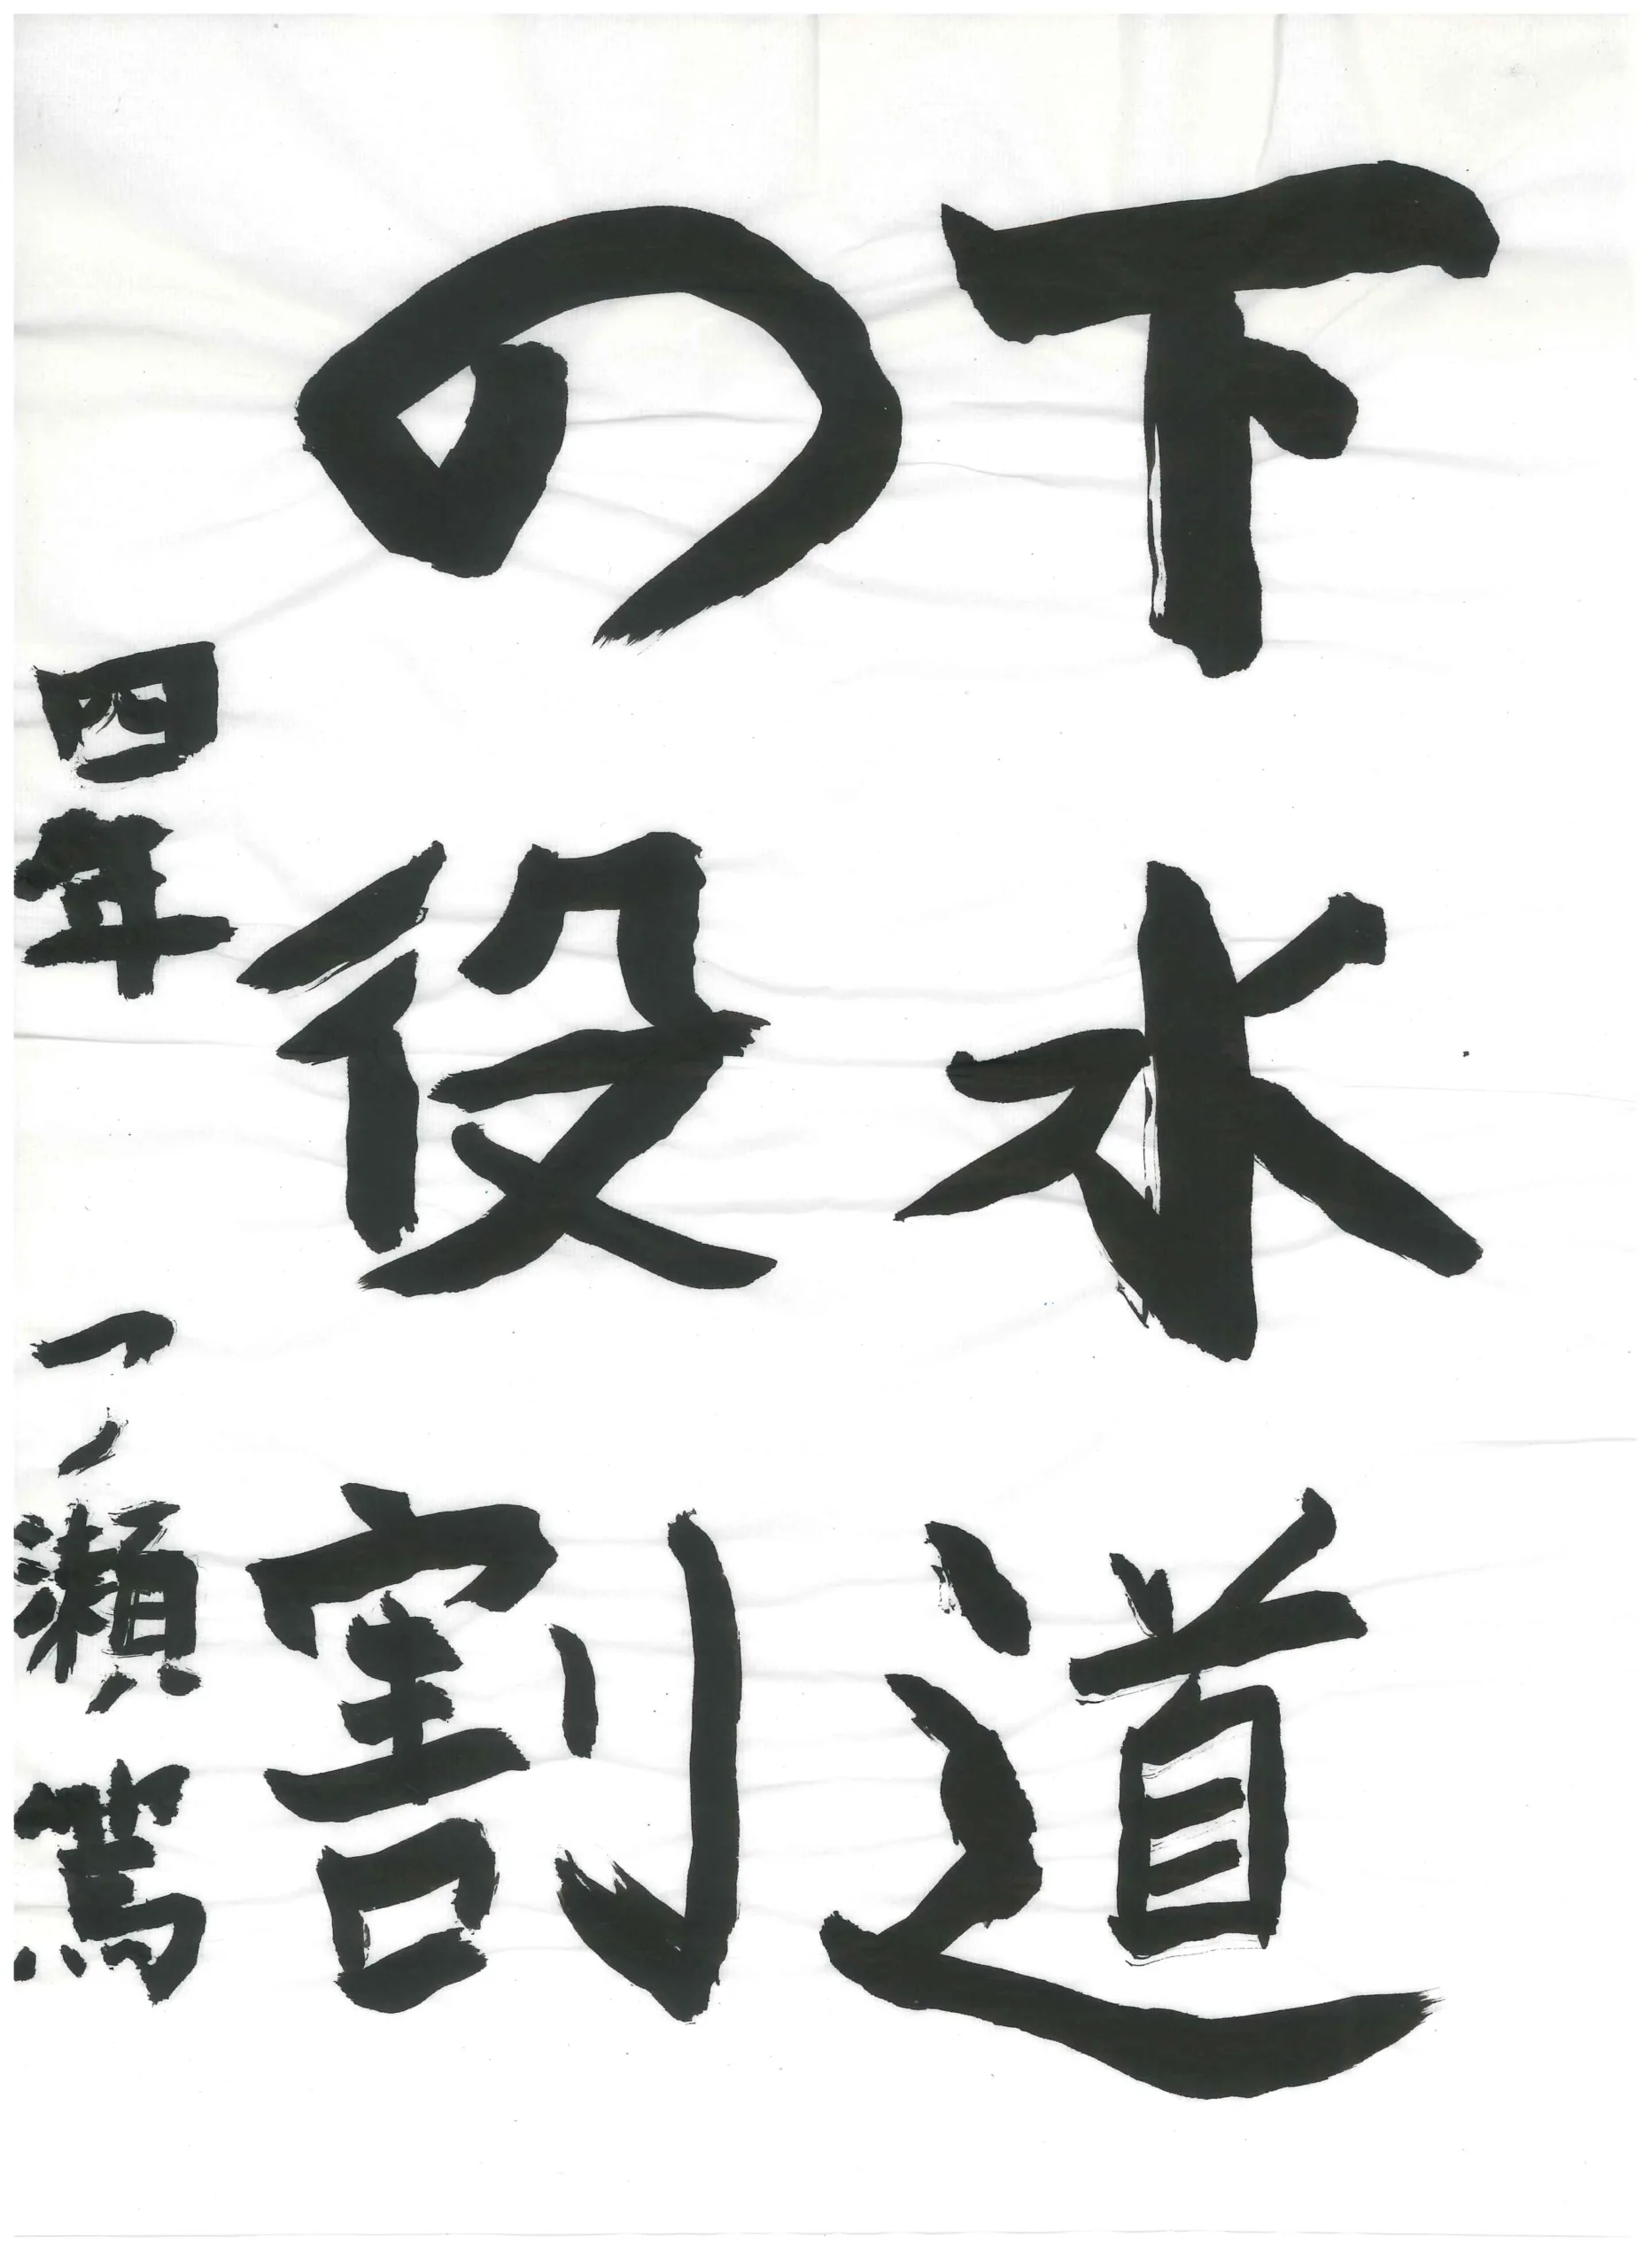 下水道
の役割
四年 一ノ瀬 篤